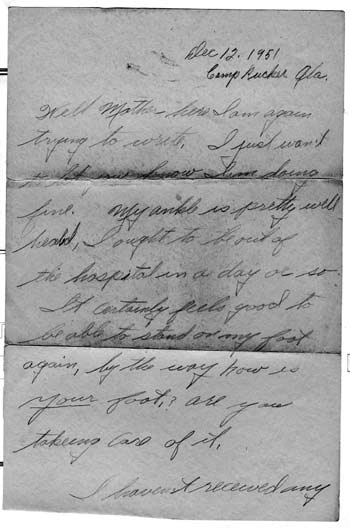 Dec 12, 1951
Camp Rucker Ala.
Well Mother here I am again
trying to write. I just want
to let you know I'm doing
fine. My ankle is pretty well
heald, I ought to be out of
the hospital in a day or so.
It certainly feels good to
be able to stand on my foot
again, by the way how is
your foot,? are you
takeing care of it.
I haven't received any